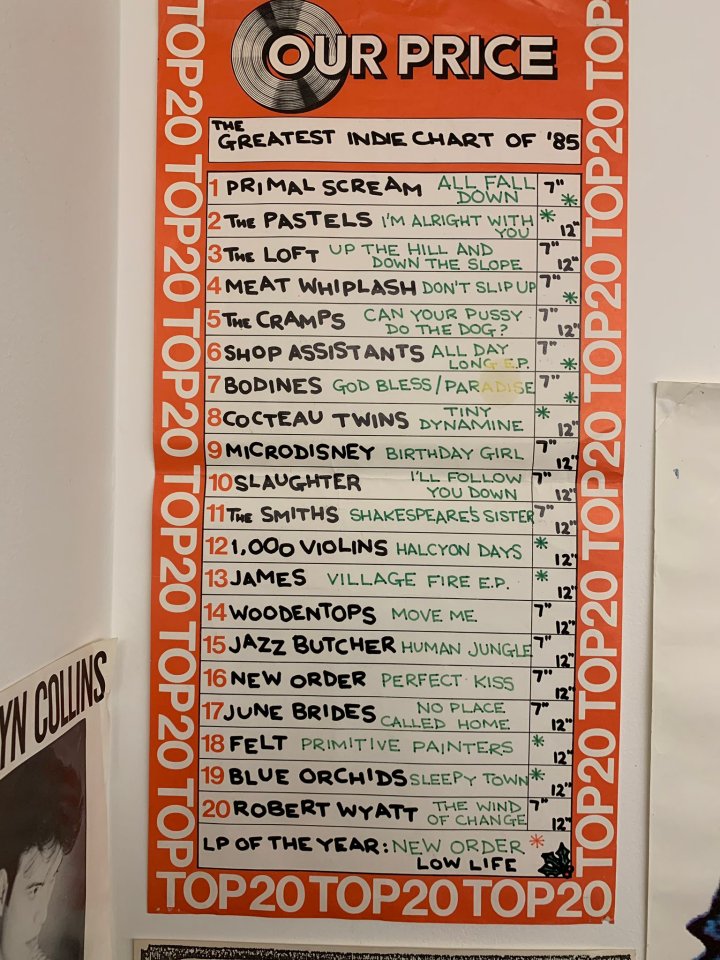 OUR PRICE
THE
GREATEST INDIE CHART OF '85
1 PRIMAL SCREAM ALL FALL DOWN 7" *
2 THE PASTELS I'M ALRIGHT WITH YOU * 12"
3 THE LOFT UP THE HILL AND DOWN THE SLOPE 7" 12"
4 MEAT WHIPLASH DON'T SLIP UP 7" *
5 THE CRAMPS CAN YOUR PUSSY DO THE DOG? 7" 12"
6 SHOP ASSISTANTS ALL DAY LONG E.P. 7" *
7 BODINES GOD BLESS/PARADISE 7" *
8 COCTEAU TWINS TINY DYNAMINE * 12"
9 MICRODISNEY BIRTHDAY GIRL 7" 12"
10 SLAUGHTER I'LL FOLLOW YOU DOWN 7" 12"
11 THE SMITHS SHAKESPEARE'S SISTER 7" 12"
12 1,000 VIOLINS HALCYON DAYS * 12"
13 JAMES VILLAGE FIRE E.P. * 12"
14 WOODENTOPS MOVE ME 7" 12"
15 JAZZ BUTCHER HUMAN JUNGLE 7" 12"
16 NEW ORDER PERFECT KISS 7" 12"
17 JUNE BRIDES NO PLACE CALLED HOME 7" 12"
18 FELT PRIMITIVE PAINTERS * 12"
19 BLUE ORCHIDS SLEEPY TOWN * 12"
20 ROBERT WYATT THE WIND OF CHANGE 7" 12"
LP OF THE YEAR: NEW ORDER *
LOW LIFE
TOP20 TOP20 TOP20
TOP20 TOP20 TOP20 TOP20 TOP20 TOP
TOP20 TOP20 TOP20 TOP20 TOP20 TOP
YN COLLINS